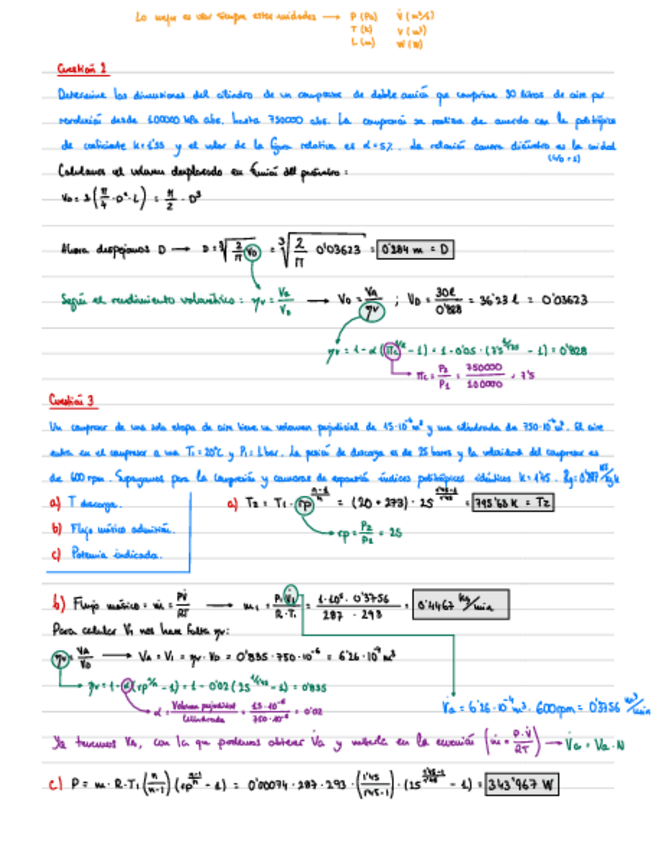 Lo mejor es usar siempre estas unidades → P (Pa) V̇ (m³/s)
T (K) V (m³)
L (m) W (W)
Cuestión 2
Determine las dimensiones del cilindro de un compresor de doble acción que comprime 30 litros de aire por
revolución desde 100000 kPa abs. hasta 750000 abs. La compresión se realiza de acuerdo con la politrópica
de coeficiente k=1'35 y el valor de la fuga relativa es α=5%. La relación carrera diámetro es la unidad
(L/D=1)
Calculamos el volumen desplazado en función del diámetro:
V_D = 2 (π/4 · D² · L) = π/2 · D³
Ahora despejamos D → D = ∛(2/π V_D) = ∛(2/π 0'03623) = 0'284 m = D
Según el rendimiento volumétrico: ηv = Va/V_D → V_D = Va/ηv ; V_D = 30l/0'828 = 36'23 l = 0'03623
ηv = 1 - α (πc^(1/k) - 1) = 1 - 0'05 · (7'5^(1/1'35) - 1) = 0'828
πc = P2/P1 = 750000/100000 = 7'5
Cuestión 3
Un compresor de una sola etapa de aire tiene un volumen perjudicial de 15·10⁻⁶ m³ y una cilindrada de 750·10⁻⁶ m³. El aire
entra en el compresor a una T1=20°C y P1=1bar. La presión de descarga es de 25 bares y la velocidad del compresor es
de 600 rpm. Supongamos para la compresión y carreras de expansión índices politrópicos idénticos k=1'45. Rg=0'287 kJ/kg k
a) T descarga.
b) Flujo másico admisión.
c) Potencia indicada.
a) T2 = T1 · rp^((n-1)/n) = (20 + 273) · 25^((1'45-1)/1'45) = 795'63 K = T2
rp = P2/P1 = 25
b) Flujo másico = ṁ = PV̇/RT → m1 = P1·V̇1/R·T1 = 1·10⁵ · 0'3756/287 · 293 = 0'4467 kg/min
Para calcular V1 nos hace falta ηv:
ηv = Va/V_D → Va = V1 = ηv · V_D = 0'835 · 750·10⁻⁶ = 6'26·10⁻⁴ m³
ηv = 1 - α (rp^(1/n) - 1) = 1 - 0'02 (25^(1/1'45) - 1) = 0'835
α = Volumen perjudicial/Cilindrada = 15·10⁻⁶/750·10⁻⁶ = 0'02
V̇a = 6'26·10⁻⁴ m³ · 600rpm = 0'3756 m³/min
Ya tenemos Va, con la que podemos obtener V̇a y meterla en la ecuación (ṁ = P·V̇/RT) → V̇a = Va · N
c) P = m · R · T1 (n/(n-1)) (rp^((n-1)/n) - 1) = 0'00074 · 287 · 293 · (1'45/(1'45-1)) · (25^((1'45-1)/1'45) - 1) = 343'967 W